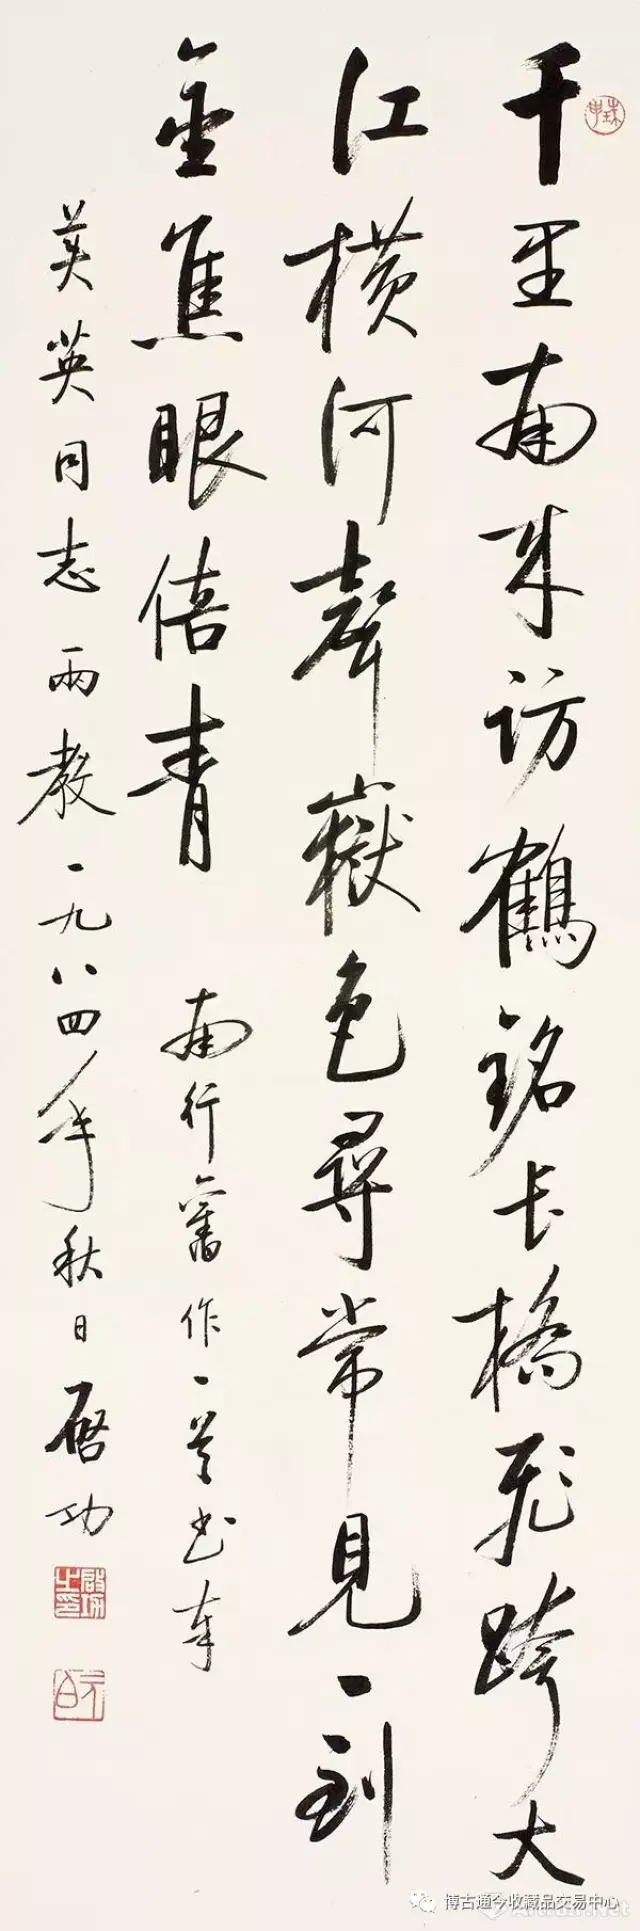 千里南来访鹤铭长桥飛跨大
江横河聲嶽色尋常見一到
金焦眼倍青
南行舊作一首书奉
英英同志两教一九八四年秋日启功
啟功之印
元白
博古通今收藏品交易中心